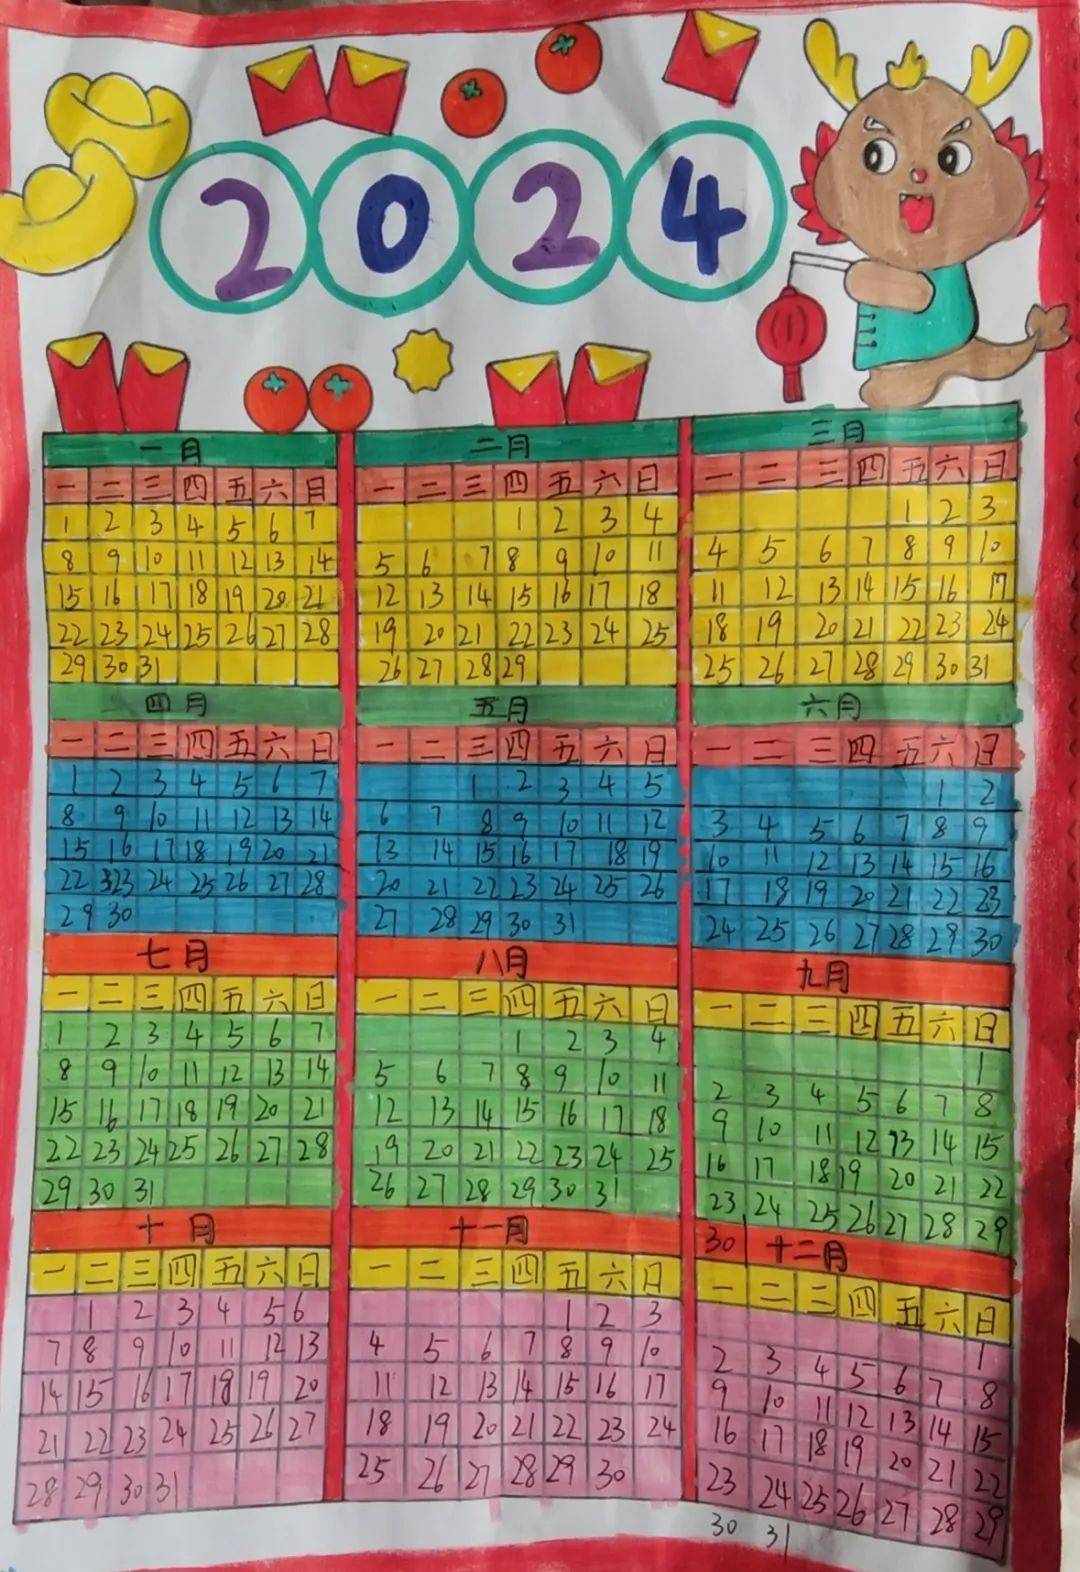 2024
一月
一 二 三 四 五 六 日
1 2 3 4 5 6 7
8 9 10 11 12 13 14
15 16 17 18 19 20 21
22 23 24 25 26 27 28
29 30 31
二月
一 二 三 四 五 六 日
1 2 3 4
5 6 7 8 9 10 11
12 13 14 15 16 17 18
19 20 21 22 23 24 25
26 27 28 29
三月
一 二 三 四 五 六 日
1 2 3
4 5 6 7 8 9 10
11 12 13 14 15 16 17
18 19 20 21 22 23 24
25 26 27 28 29 30 31
四月
一 二 三 四 五 六 日
1 2 3 4 5 6 7
8 9 10 11 12 13 14
15 16 17 18 19 20 21
22 23 24 25 26 27 28
29 30
五月
一 二 三 四 五 六 日
1 2 3 4 5
6 7 8 9 10 11 12
13 14 15 16 17 18 19
20 21 22 23 24 25 26
27 28 29 30 31
六月
一 二 三 四 五 六 日
1 2
3 4 5 6 7 8 9
10 11 12 13 14 15 16
17 18 19 20 21 22 23
24 25 26 27 28 29 30
七月
一 二 三 四 五 六 日
1 2 3 4 5 6 7
8 9 10 11 12 13 14
15 16 17 18 19 20 21
22 23 24 25 26 27 28
29 30 31
八月
一 二 三 四 五 六 日
1 2 3 4
5 6 7 8 9 10 11
12 13 14 15 16 17 18
19 20 21 22 23 24 25
26 27 28 29 30 31
九月
一 二 三 四 五 六 日
1
2 3 4 5 6 7 8
9 10 11 12 13 14 15
16 17 18 19 20 21 22
23 24 25 26 27 28 29
30
十月
一 二 三 四 五 六 日
1 2 3 4 5 6
7 8 9 10 11 12 13
14 15 16 17 18 19 20
21 22 23 24 25 26 27
28 29 30 31
十一月
一 二 三 四 五 六 日
1 2 3
4 5 6 7 8 9 10
11 12 13 14 15 16 17
18 19 20 21 22 23 24
25 26 27 28 29 30
十二月
一 二 三 四 五 六 日
1
2 3 4 5 6 7 8
9 10 11 12 13 14 15
16 17 18 19 20 21 22
23 24 25 26 27 28 29
30 31